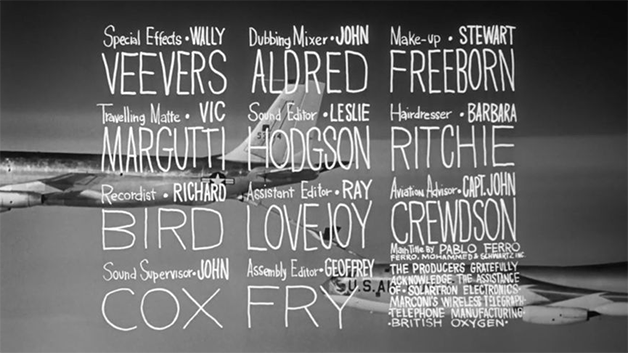 Special Effects • WALLY
VEEVERS
Travelling Matte • VIC
MARGUTTI
Recordist • RICHARD
BIRD
Sound Supervisor • JOHN
COX
Dubbing Mixer • JOHN
ALDRED
Sound Editor • LESLIE
HODGSON
Assistant Editor • RAY
LOVEJOY
Assembly Editor • GEOFFREY
FRY
Make-up • STEWART
FREEBORN
Hairdresser • BARBARA
RITCHIE
Aviation Advisor • CAPT. JOHN
CREWDSON
Main Title By PABLO FERRO
FERRO, MOHAMMED & SCHWARTZ INC.
THE PRODUCERS GRATEFULLY
ACKNOWLEDGE THE ASSISTANCE
OF • SOLARTRON ELECTRONICS •
MARCONI'S WIRELESS TELEGRAPH •
TELEPHONE MANUFACTURING •
• BRITISH OXYGEN •
U.S. AI